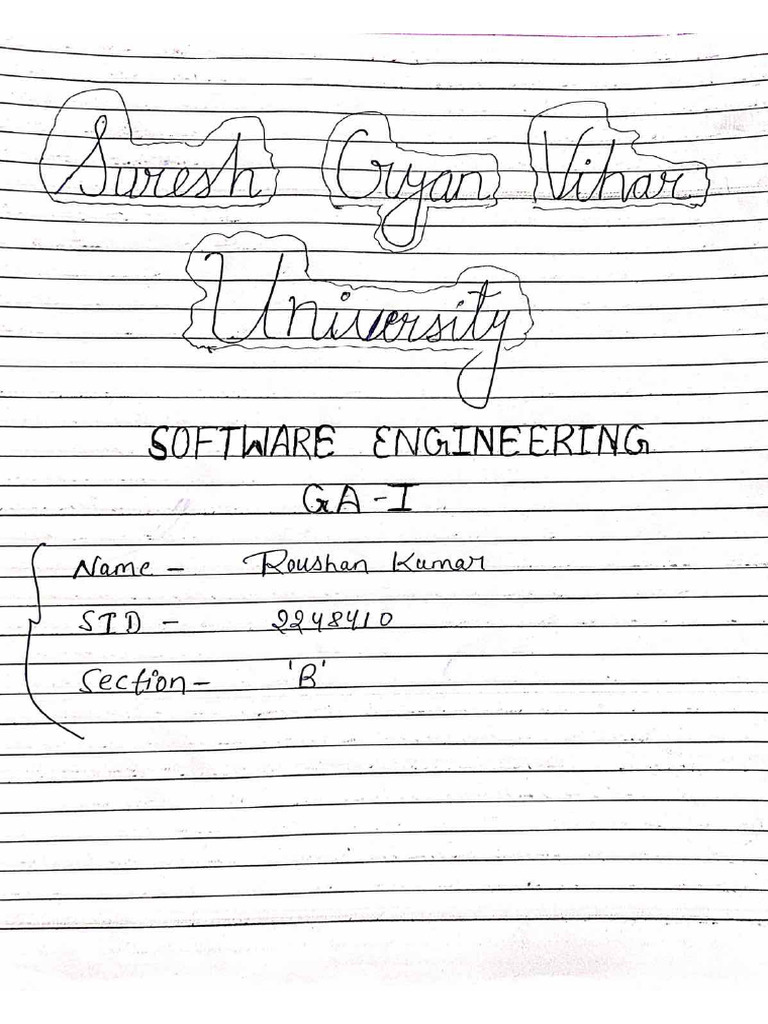 Suresh Gyan Vihar
University
SOFTWARE ENGINEERING
GA-I
Name - Roushan Kumar
SID - 2248410
Section - 'B'